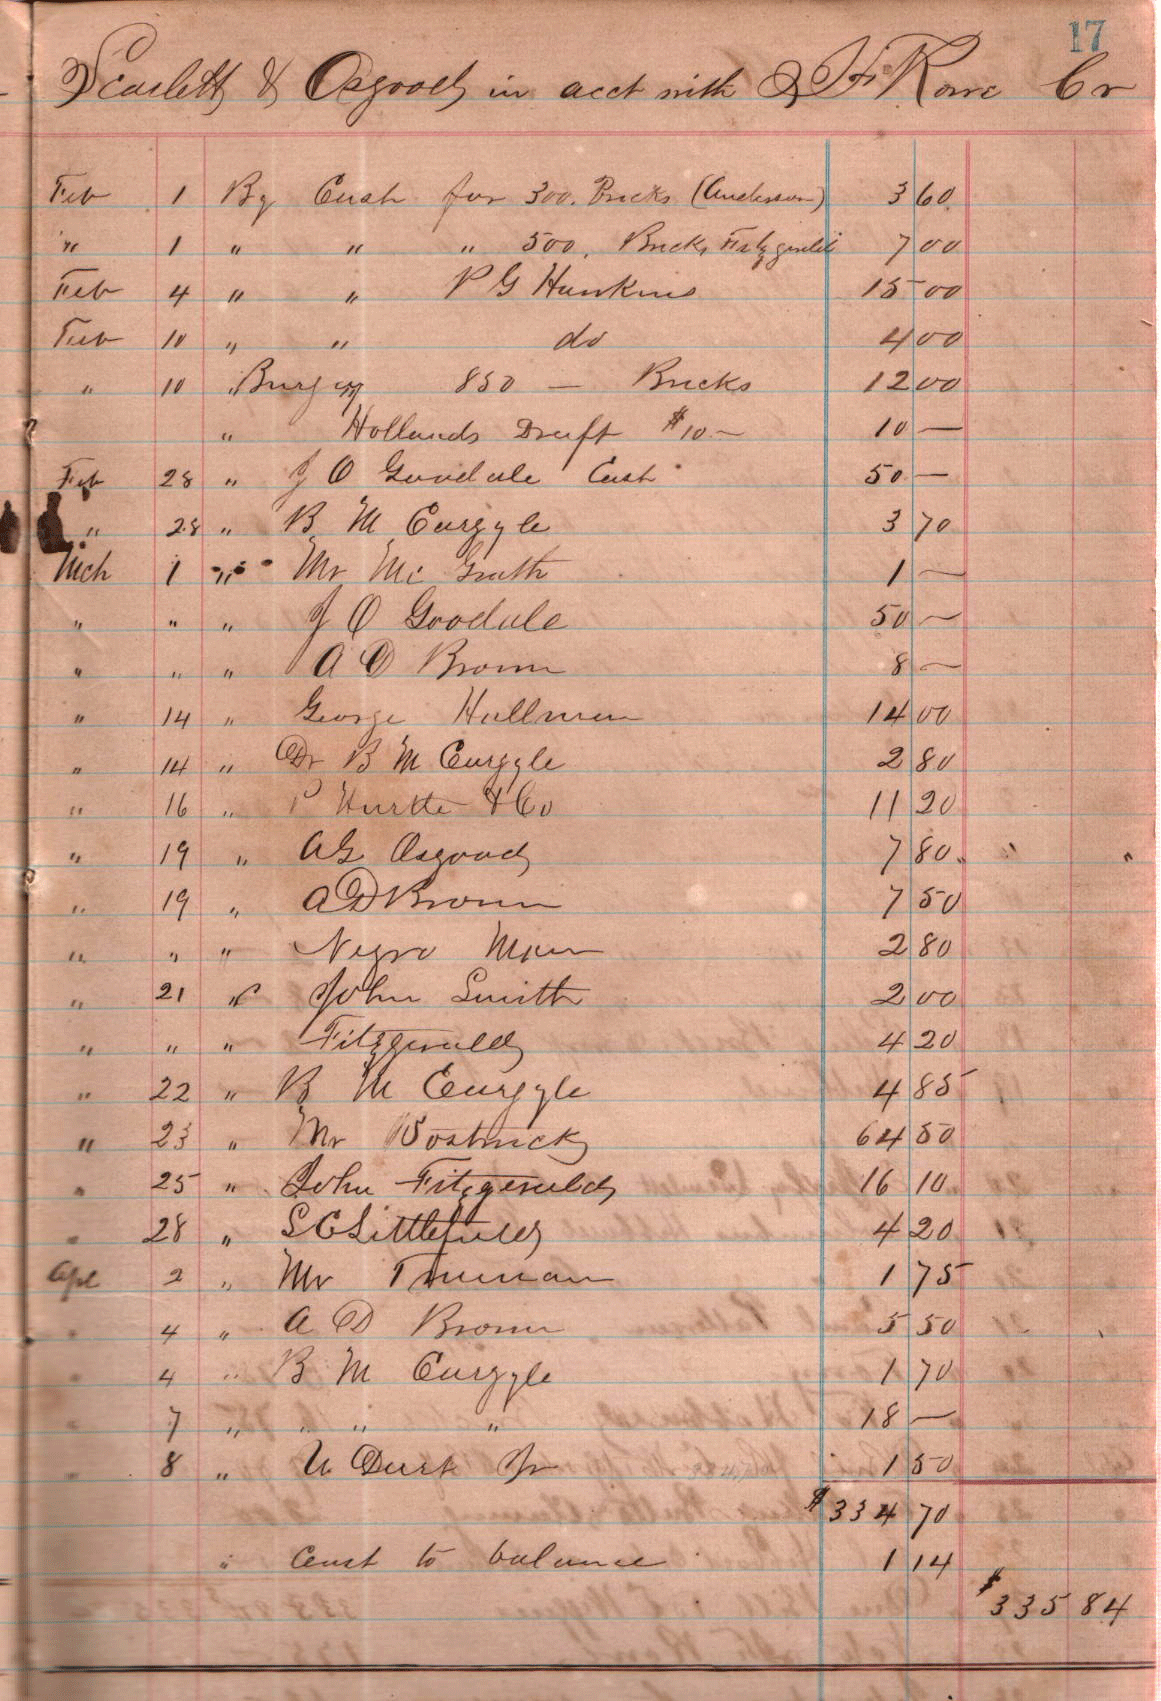 17
Scarlett & Osgood in acct with J H Rowe Cr
Feb 1 By Cash for 300. Bricks (Anderson) 3 60
" 1 " " " 500, Bricks Fitzgerald 7 00
Feb 4 " " P G Hawkins 15 00
Feb 10 " " do 4 00
" 10 " 850 — Bricks 12 00
" Hollands Draft $10.— 10 —
Feb 28 " J O Goodale Cash 50 —
" 28 " B M Cargyle 3 70
Mch 1 " Mr Mc Grath 1 —
" " " J O Goodale 50 —
" " " A D Brown 8 —
" 14 " George Hallman 14 00
" 14 " Dr B M Cargyle 2 80
" 16 " P & Co 11 20
" 19 " A G Osgood 7 80
" 19 " A D Brown 7 50
" " " Negro Man 2 80
" 21 " John Smith 2 00
" " " Fitzgerald 4 20
" 22 " B M Cargyle 4 85
" 23 " Mr Bostwick 64 50
" 25 " John Fitzgerald 16 10
" 28 " S C Littlefield 4 20
Apl 2 " Mr Truman 1 75
" 4 " A D Brown 5 50
" 4 " B M Cargyle 1 70
" 7 " " " " 18 —
" 8 " Jr 1 50
$334 70
" Cash to balance 1 14
$335 84